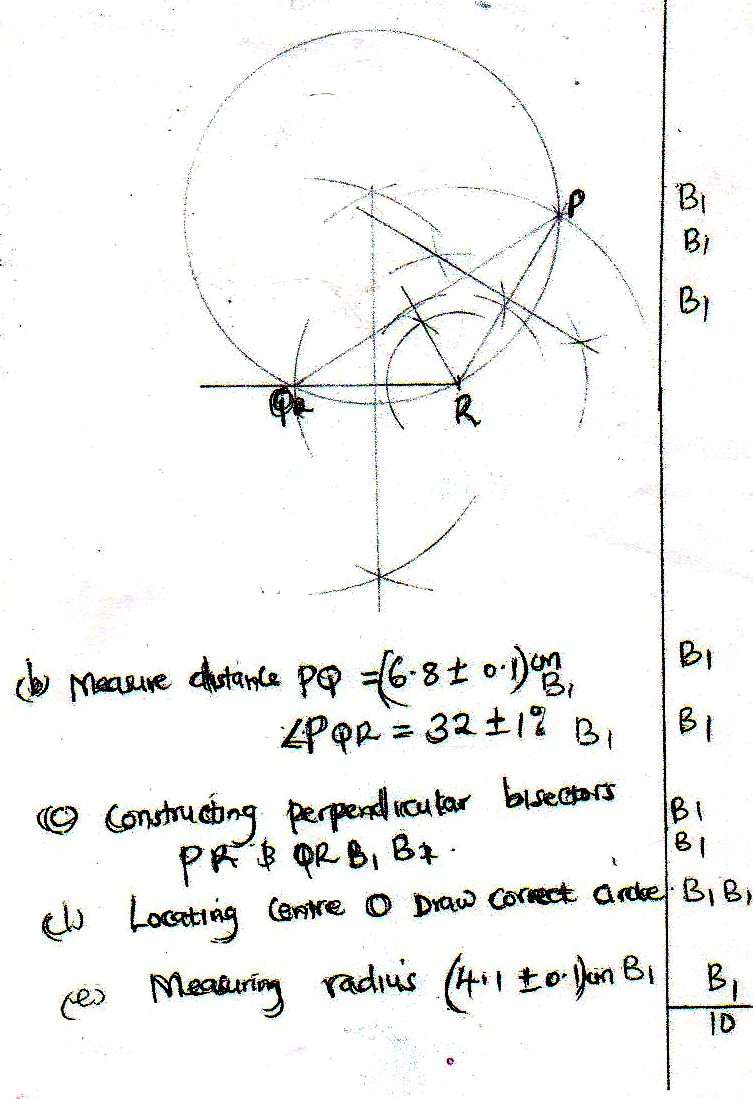 P
B1
B1
B1
Q
R
(b) Measure distance PQ = (6.8 ± 0.1)cm B1 B1
∠PQR = 32 ± 1° B1 B1
(c) Constructing perpendicular bisectors B1
PR & QR B1 B1. B1
Locating Centre O Draw correct circle B1 B1
(e) Measuring radius (4.1 ± 0.1)cm B1 B1
10